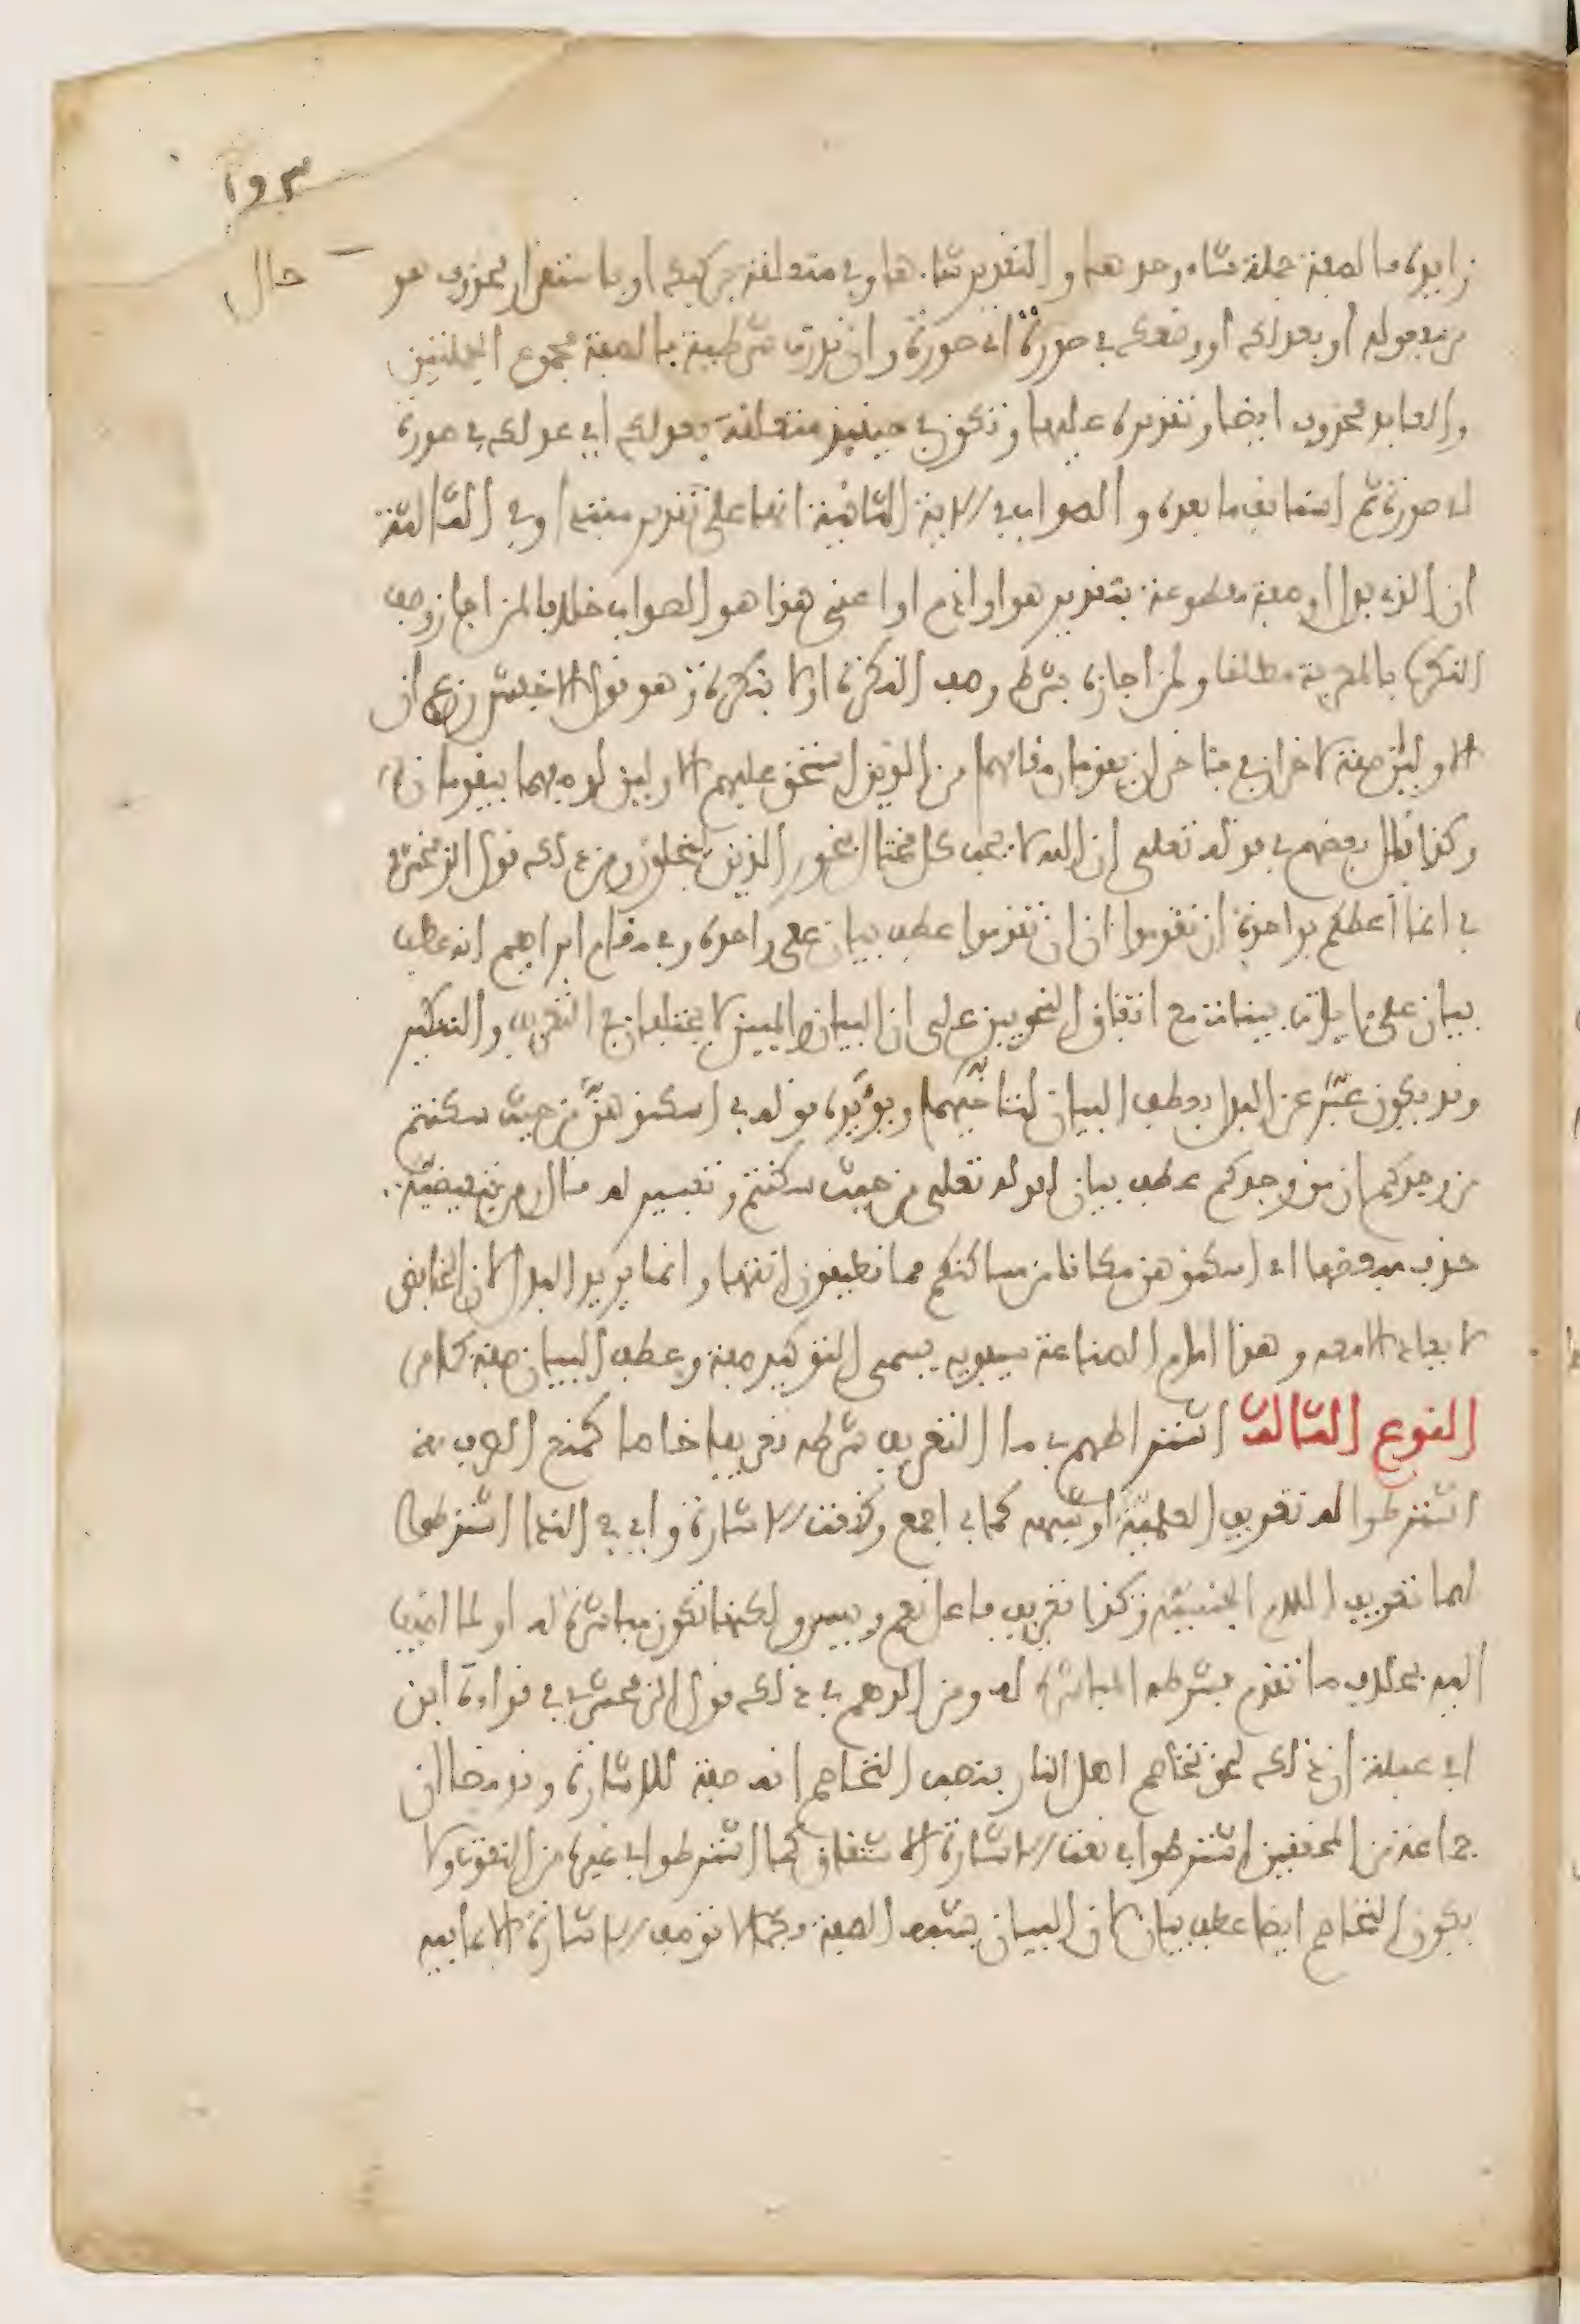 ١٩٣
زايدة فالصفة جملة شاء وحدها والتقدير شاءها وفي متعلقة بركبك او باستقرار محذوف هو حال
من مفعوله او بعدلك اي وضعك في صورة اي صورة وان قدرت شرطية فالصفة مجموع الجملتين
والعايد محذوف ايضا وتقديره عليها وتكون في حينئذ متعلقة بعدلك اي عدلك في صورة
اي صورة ثم استانف ما بعده والصواب في الاية الثانية انها على تقدير مبتدا وفي الثالثة
ان الذي بدل او صفة مقطوعة بتقدير هو او اذم او اعني هذا هو الصواب خلافا لمن اجاز وصف
النكرة بالمعرفة مطلقا ولمن اجازه بشرط وصف النكرة اولا بنكرة وهو قول الاخفش زعم ان
الاوليان صفة لاخران في فئاخران يقومان مقامهما من الذين استحق عليهم الاوليان لوصفهما بيقومان
وكذا قال بعضهم في قوله تعلى ان الله لا يحب كل مختال فخور الذين يبخلون ومن ذلك قول الزمخشري
في انما اعظكم بواحدة ان تقوموا ان ان تقوموا عطف بيان على واحدة وفي مقام ابراهيم انه عطف
بيان على ءايات بينات مع اتفاق النحويين على ان البيان والمبين لا يختلفان في التعريف والتنكير
وقد يكون عبّر عن البدل بعطف البيان لتئاخيهما ويؤيده قوله في اسكنوهنّ من حيث سكنتم
من وجدكم ان من وجدكم عطف بيان لقوله تعلى من حيث سكنتم وتفسير له قال ومن تبعيضية
حذف مبعضها اي اسكنوهن مكانا من مساكنكم مما تطيقون انتهى وانما يريد البدل لان الخافض
لا يعاد الا معه وهذا امام الصناعة سيبويه يسمي التوكيد صفة وعطف البيان صفة كما مر
النوع الثالث اشتراطهم في ما التعريف شرطه تعريفا خاصا كمنع الصرف
اشترطوا له تعريف العلمية او شبهه كما في اجمع وكنعت الاشارة واي في الندا اشترطوا
لهما تعريف اللام الجنسية وكذا تعريف فاعل نعم وبيس ولكنها تكون مباشرة له او لما اضيف
اليه بخلاف ما تقدم فشرطه المباشرة له ومن الوهم في ذلك قول الزمخشري في قراءة ابن
ابي عبلة ان ذلك لحق تخاصم اهل النار بنصب التخاصم انه صفة للاشارة وقد مضا ان
جماعة من المحققين اشترطوا في نعت الاشارة الاشتقاق كما اشترطوا في غيره من النعوت ولا
يكون التخاصم ايضا عطف بيان لان البيان يشبه الصفة فكما لا توصف الاشارة الا بما فيه